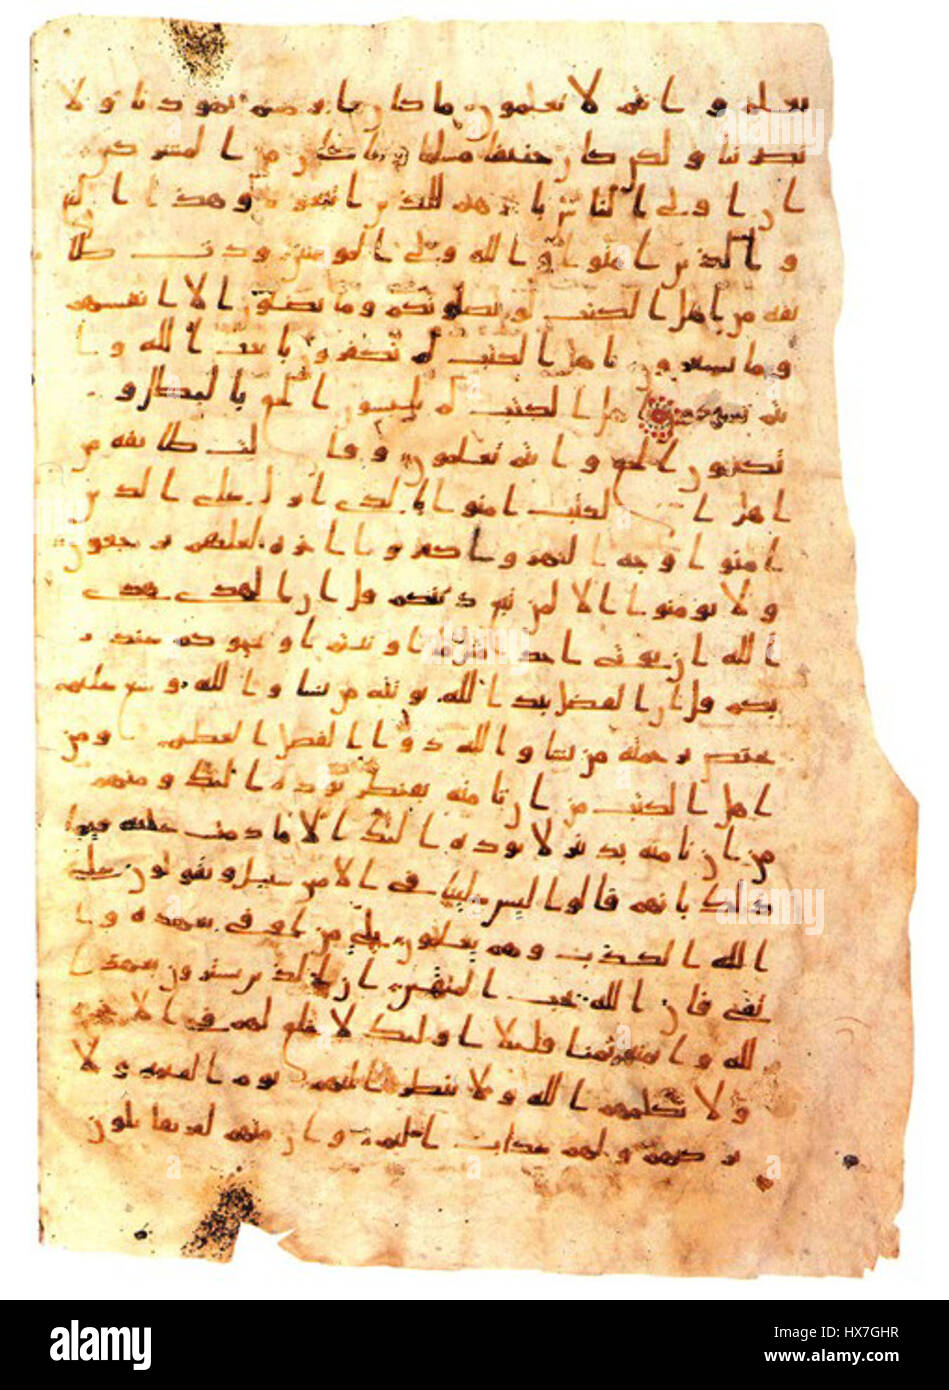 يعلم وانتم لا تعلمون ما كان ابرهيم يهوديا ولا
نصرنيا ولكن كان حنيفا مسلما وما كان من المشركين
ان اولى الناس بابرهيم للذين اتبعوه وهذا النبي
والذين امنوا والله ولي المومنين ودت طا
ئفه من اهل الكتب لو يضلونكم وما يضلون الا انفسهم
وما يشعرون ياهل الكتب لم تكفرون بايت الله وا
نتم تشهدون ياهل الكتب لم تلبسون الحق بالبطل و
تكتمون الحق وانتم تعلمون وقالت طائفه من
اهل الكتب امنوا بالذي انزل على الذين
امنوا وجه النهر واكفروا اخره لعلهم يرجعون
ولا تومنوا الا لمن تبع دينكم قل ان الهدى هدى
الله ان يوتى احد مثل ما اوتيتم او يحجوكم عند ر
بكم قل ان الفضل بيد الله يوتيه من يشا والله وسع عليم
يختص برحمته من يشا والله ذو الفضل العظيم ومن
اهل الكتب من ان تامنه بقنطر يوده اليك ومنهم
من ان تامنه بدينر لا يوده اليك الا ما دمت عليه قيما
ذلك بانهم قالوا ليس علينا في الامين سبيل ويقولون على
الله الكذب وهم يعلمون بلى من اوفى بعهده وا
تقى فان الله يحب المتقين ان الذين يشترون بعهد ا
لله وايمنهم ثمنا قليلا اوليك لا خلق لهم في الاخره
ولا يكلمهم الله ولا ينظر اليهم يوم القيمه ولا
يزكيهم ولهم عذاب اليم وان منهم لفريقا يلون
alamy stock photo
HX7GHR
www.alamy.com